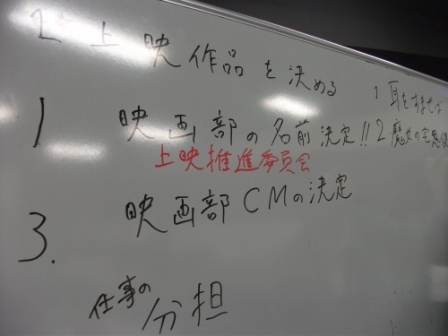 2 上映作品を決める
1 映画部の名前決定!!
上映推進委員会
3. 映画部CMの決定
仕事の分担
1 耳をすませば
2 魔女の宅急便